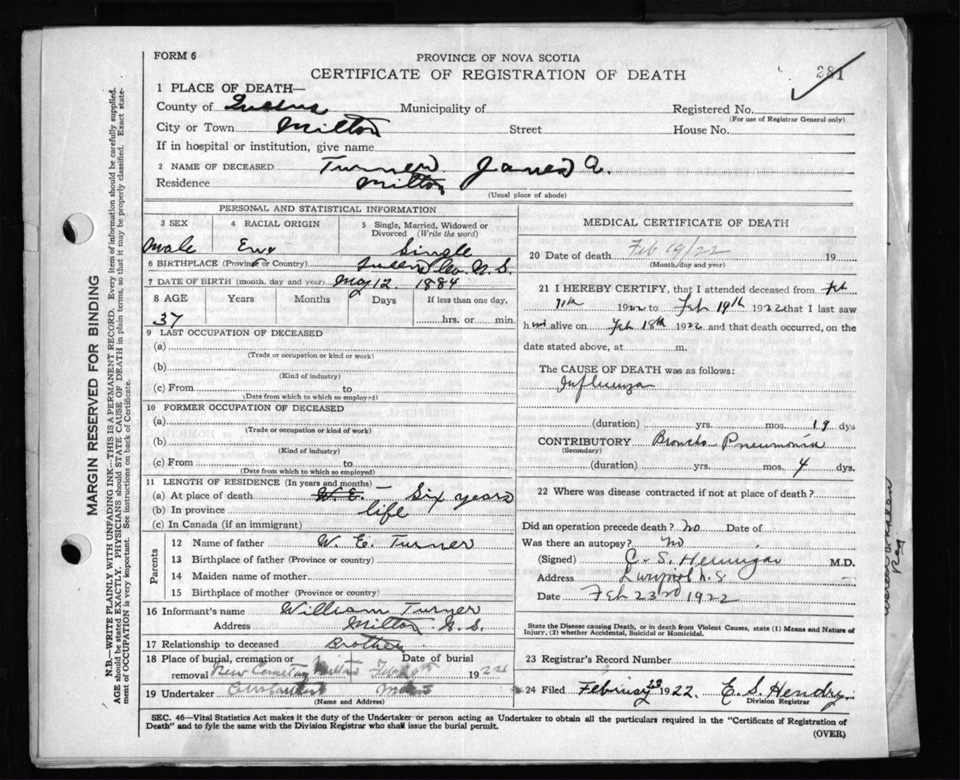 FORM 6
PROVINCE OF NOVA SCOTIA
281
CERTIFICATE OF REGISTRATION OF DEATH
1 PLACE OF DEATH—
County of Queens Municipality of Registered No.
(For use of Registrar General only)
City or Town Milton Street House No.
If in hospital or institution, give name
2 NAME OF DECEASED Turner James A.
Residence Milton
(Usual place of abode)
PERSONAL AND STATISTICAL INFORMATION
3 SEX 4 RACIAL ORIGIN 5 Single, Married, Widowed or Divorced (Write the word)
Male Eng Single
6 BIRTHPLACE (Province or Country) Co. N. S.
7 DATE OF BIRTH (month, day and year) May 12. 1884
8 AGE Years Months Days If less than one day,
37 hrs. or min.
9 LAST OCCUPATION OF DECEASED
(a)
(Trade or occupation or kind or work)
(b)
(Kind of industry)
(c) From to
(Date from which to which so employed)
10 FORMER OCCUPATION OF DECEASED
(a)
(Trade or occupation or kind of work)
(b)
(Kind of industry)
(c) From to
(Date from which to which so employed)
11 LENGTH OF RESIDENCE (In years and months)
(a) At place of death W. E. — Six years
(b) In province life
(c) In Canada (if an immigrant)
Parents
12 Name of father W. E. Turner
13 Birthplace of father (Province or country)
14 Maiden name of mother
15 Birthplace of mother (Province or country)
16 Informant's name William Turner
Address Milton N. S.
17 Relationship to deceased Brother
18 Place of burial, cremation or removal Date of burial
New Cemetery Milton 192
19 Undertaker
(Name and Address)
MEDICAL CERTIFICATE OF DEATH
20 Date of death Feb 19/22 19
(Month, day and year)
21 I HEREBY CERTIFY, that I attended deceased from Feb
11th 1922 to Feb 19th 1922 that I last saw
him alive on Feb 18th 1922 and that death occurred, on the
date stated above, at m.
The CAUSE OF DEATH was as follows:
Influenza
(duration) yrs. mos. dys
CONTRIBUTORY Broncho Pneumonia
(Secondary)
(duration) yrs. mos. 4 dys.
22 Where was disease contracted if not at place of death?
Did an operation precede death? No Date of
Was there an autopsy? No
(Signed) C. S. M.D.
Address N. S.
Date Feb 23rd 1922
State the Disease causing Death, or in death from Violent Causes, state (1) Means and Nature of
Injury, (2) whether Accidental, Suicidal or Homicidal.
23 Registrar's Record Number
24 Filed February 23 1922. E. S. Hendry
Division Registrar
SEC. 46—Vital Statistics Act makes it the duty of the Undertaker or person acting as Undertaker to obtain all the particulars required in the "Certificate of Registration of
Death" and to fyle the same with the Division Registrar who shall issue the burial permit.
(OVER)
MARGIN RESERVED FOR BINDING
N.B.—WRITE PLAINLY WITH UNFADING INK—THIS IS A PERMANENT RECORD. Every item of information should be carefully supplied.
AGE should be stated EXACTLY. PHYSICIANS should STATE CAUSE OF DEATH in plain terms, so that it may be properly classified. Exact state-
ment of OCCUPATION is very important. See instructions on back of Certificate.